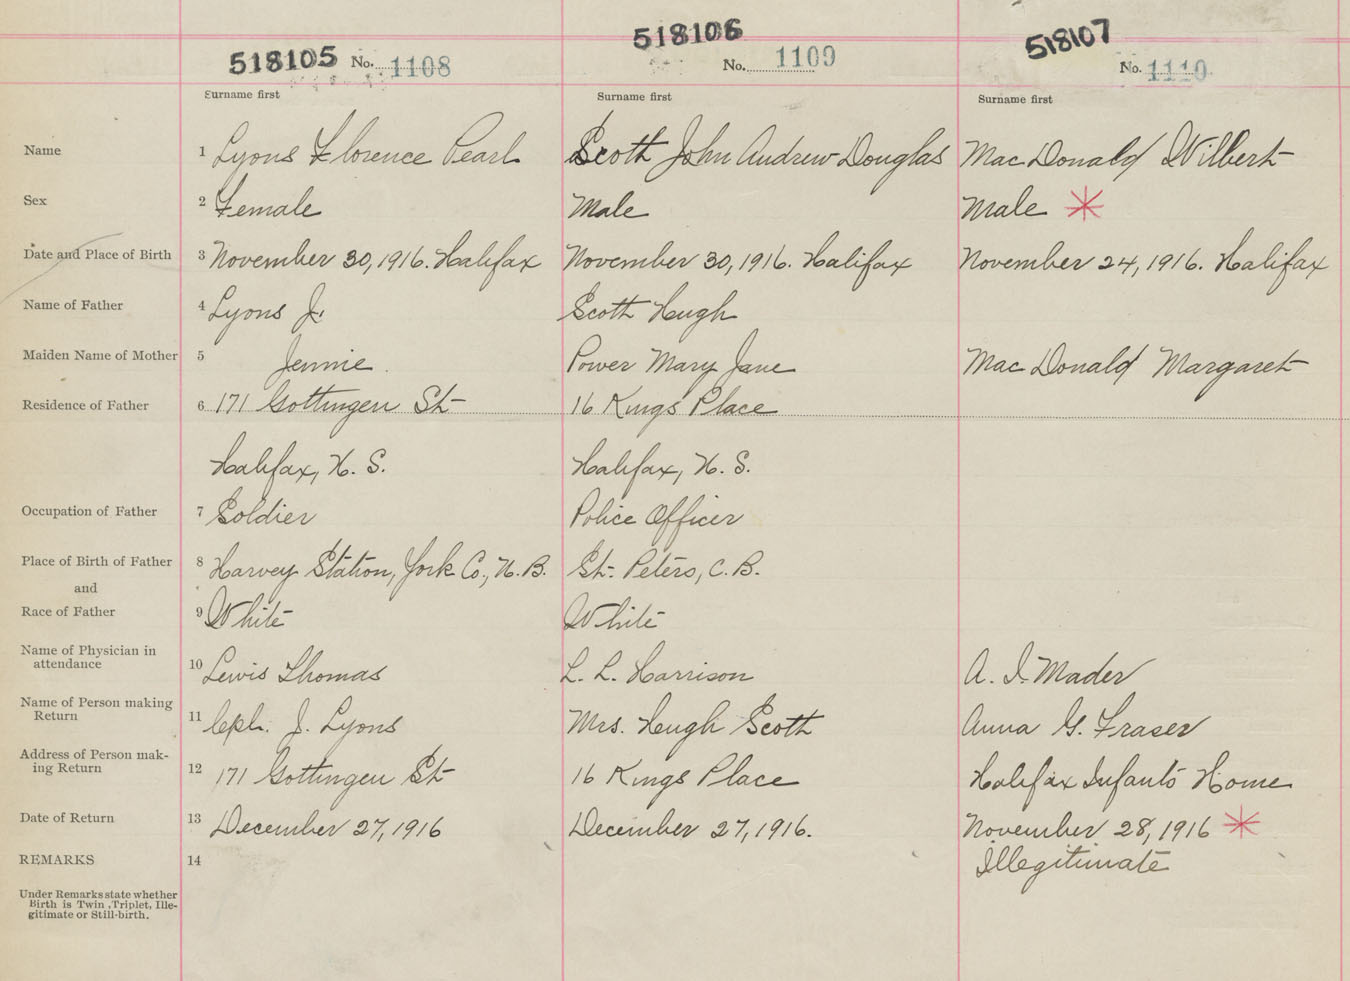 518105 No. 1108 518106 No. 1109 518107 No. 1110
Surname first Surname first Surname first
Name 1 Lyons Florence Pearl Scott John Andrew Douglas MacDonald Wilbert
Sex 2 Female Male Male *
Date and Place of Birth 3 November 30, 1916. Halifax November 30, 1916. Halifax November 24, 1916. Halifax
Name of Father 4 Lyons J. Scott Hugh
Maiden Name of Mother 5 Jennie Power Mary Jane MacDonald Margaret
Residence of Father 6 171 Gottingen St 16 Kings Place
Halifax, N. S. Halifax, N. S.
Occupation of Father 7 Soldier Police Officer
Place of Birth of Father 8 Harvey Station, York Co., N. B. St. Peters, C. B.
and
Race of Father 9 White White
Name of Physician in
attendance 10 Lewis Thomas L. L. Harrison A. I. Mader
Name of Person making
Return 11 Cpl. J. Lyons Mrs. Hugh Scott Anna G. Fraser
Address of Person mak-
ing Return 12 171 Gottingen St 16 Kings Place Halifax Infants Home
Date of Return 13 December 27, 1916 December 27, 1916. November 28, 1916 *
REMARKS 14 Illegitimate
Under Remarks state whether
Birth is Twin, Triplet, Ille-
gitimate or Still-birth.